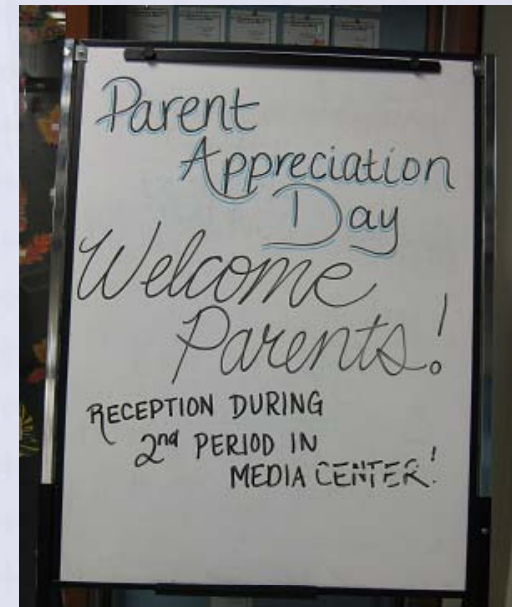 Parent
Appreciation
Day
Welcome
Parents!
RECEPTION DURING
2nd PERIOD IN
MEDIA CENTER!